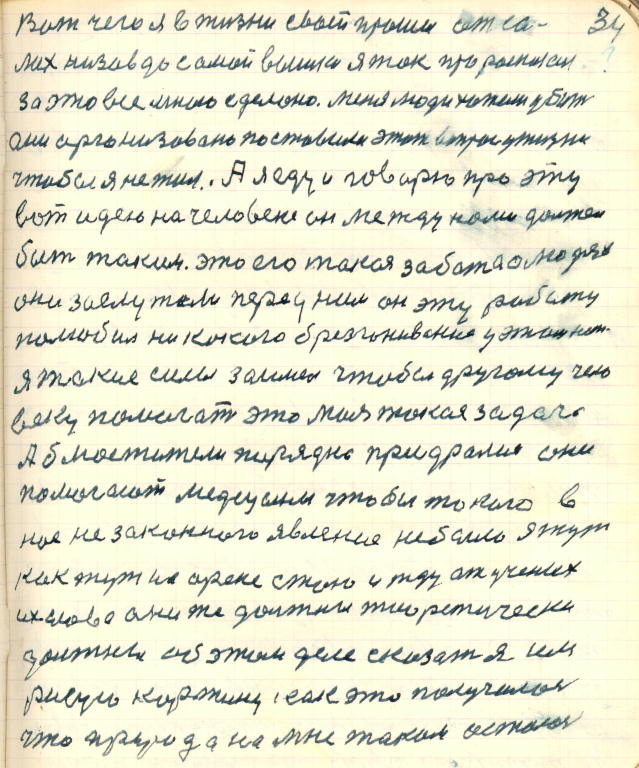 Вот чего я в жизни своей прошел от са- 34
мих низов до самой вышки я так про росписал
за это все мною сделоно. Меня люди хотели убит
они организовано поставили этот вопрос у жизни
чтобы я не жил. А я еду и говорю про эту
вот идею на человеке он междуноми должен
быт таким. это его такая забота о людях
они заслужили перед ним он эту работу
полюбил ни какого брезгонивание у этом нет.
я такие силы заимел чтобы другому чело
веку помогат это моя такая задача
А блюстители порядка придралис они
помогают медецины чтобы токого в
ное не законного явление небыло я тут
как тут на арене стою и жду от ученых
их слово они же должны теоретически
должны об этом деле сказат я им
рисую картину как это получилос
что природа на мне таком осталос